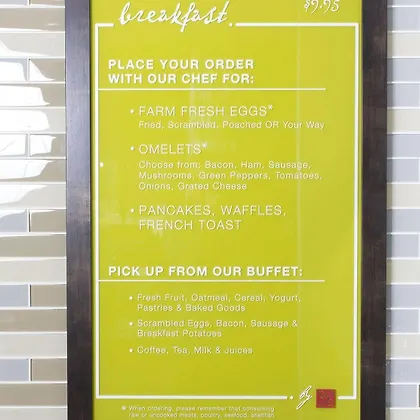 breakfast.
$9.95
PLACE YOUR ORDER
WITH OUR CHEF FOR:
• FARM FRESH EGGS*
Fried, Scrambled, Poached OR Your Way
• OMELETS*
Choose from: Bacon, Ham, Sausage,
Mushrooms, Green Peppers, Tomatoes,
Onions, Grated Cheese
• PANCAKES, WAFFLES,
FRENCH TOAST
PICK UP FROM OUR BUFFET:
• Fresh Fruit, Oatmeal, Cereal, Yogurt,
Pastries & Baked Goods
• Scrambled Eggs, Bacon, Sausage &
Breakfast Potatoes
• Coffee, Tea, Milk & Juices
* When ordering, please remember that consuming
raw or uncooked meats, poultry, seafood, shellfish